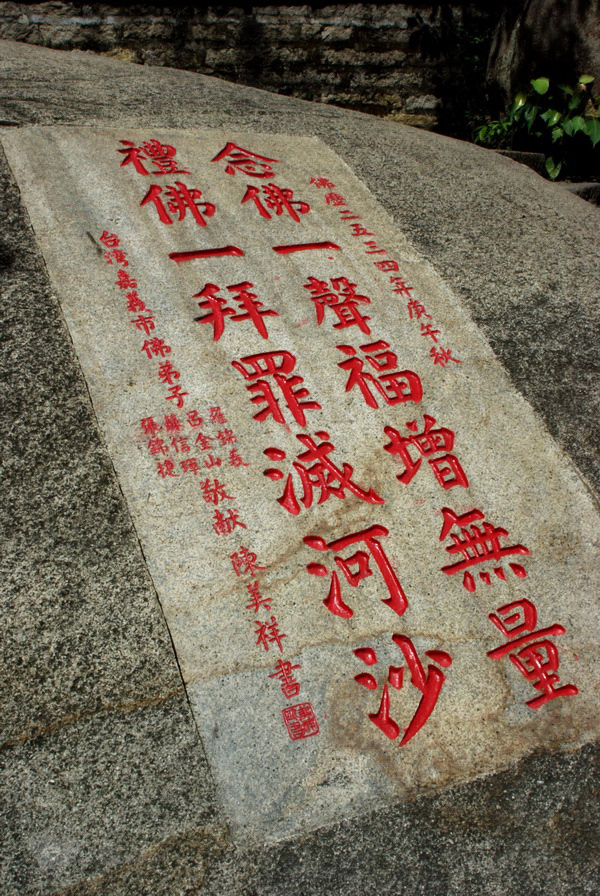 佛曆二五三四年庚午秋
念佛一聲福增無量
禮佛一拜罪滅河沙
台湾嘉義市佛弟子
呂金山
敬献
陳美祥書